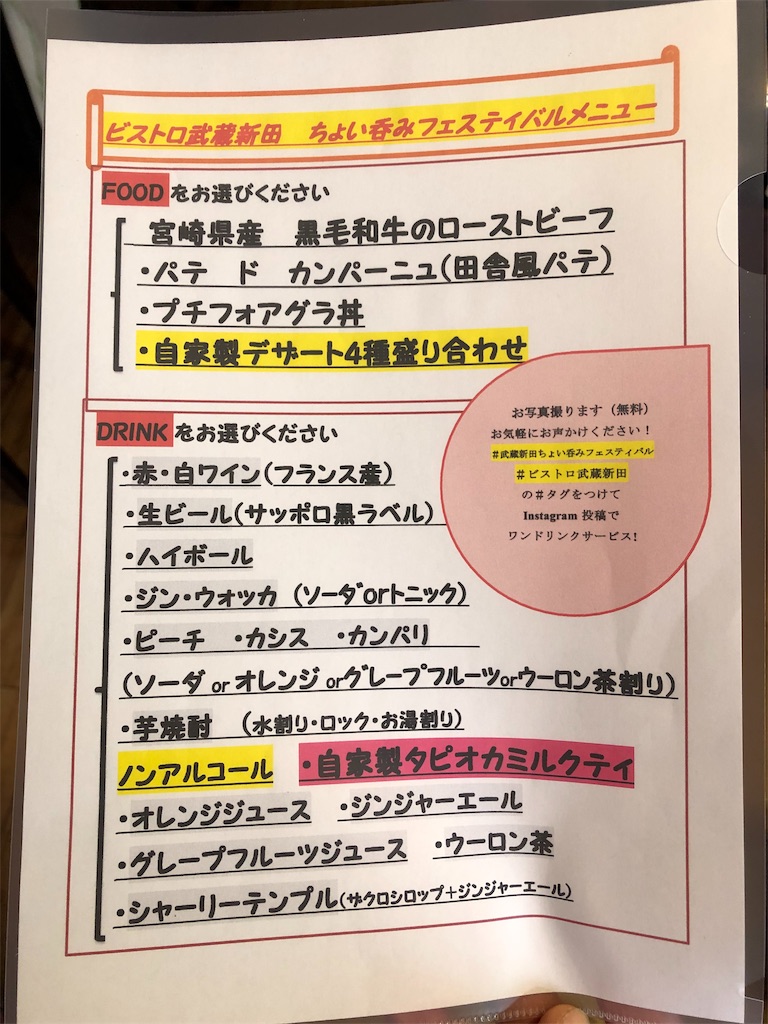 ビストロ武蔵新田　ちょい呑みフェスティバルメニュー
FOOD をお選びください
宮崎県産　黒毛和牛のローストビーフ
・パテ　ド　カンパーニュ(田舎風パテ)
・プチフォアグラ丼
・自家製デザート4種盛り合わせ
お写真撮ります（無料）
お気軽にお声かけください！
#武蔵新田ちょい呑みフェスティバル
#ビストロ武蔵新田
の#タグをつけて
Instagram 投稿で
ワンドリンクサービス!
DRINK をお選びください
・赤・白ワイン(フランス産)
・生ビール(サッポロ黒ラベル)
・ハイボール
・ジン・ウォッカ (ソーダorトニック)
・ピーチ　・カシス　・カンパリ
(ソーダ or オレンジ orグレープフルーツorウーロン茶割り)
・芋焼酎　(水割り・ロック・お湯割り)
ノンアルコール　・自家製タピオカミルクティ
・オレンジジュース　・ジンジャーエール
・グレープフルーツジュース　・ウーロン茶
・シャーリーテンプル(ザクロシロップ+ジンジャーエール)